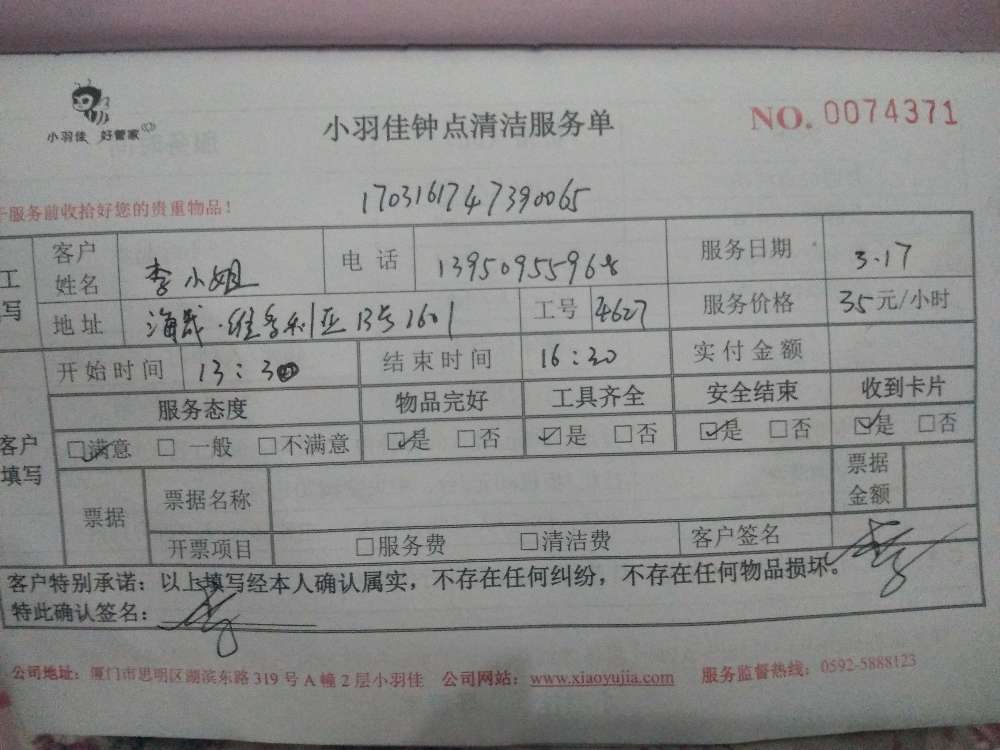 小羽佳 好管家
小羽佳钟点清洁服务单
NO. 0074371
1703161747390065
服务前收拾好您的贵重物品！
工
写
客户姓名 李小姐 电话 13950955968 服务日期 3.17
地址 海晟·维多利亚13号1601 工号 4627 服务价格 35元/小时
客户填写
开始时间 13:30 结束时间 16:30 实付金额
服务态度 物品完好 工具齐全 安全结束 收到卡片
☑满意 □一般 □不满意 ☑是 □否 ☑是 □否 ☑是 □否 ☑是 □否
票据 票据名称 票据金额
开票项目 □服务费 □清洁费 客户签名
客户特别承诺：以上填写经本人确认属实，不存在任何纠纷，不存在任何物品损坏。
特此确认签名：
公司地址：厦门市思明区湖滨东路319号A幢2层小羽佳 公司网站：www.xiaoyujia.com 服务监督热线：0592-5888123